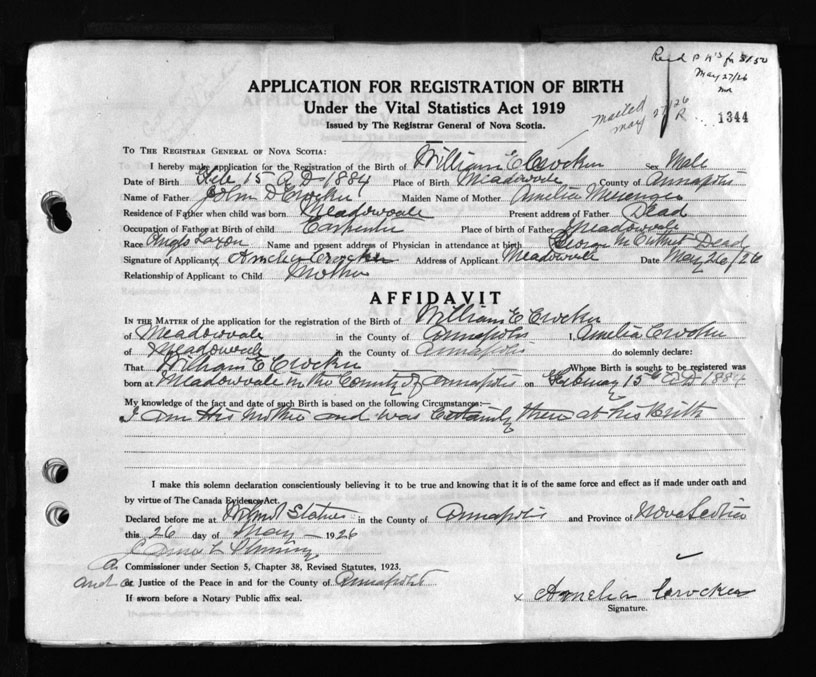 Rec'd P.N's for $1.50
May 27/26
APPLICATION FOR REGISTRATION OF BIRTH
Under the Vital Statistics Act 1919
mailed May 27/26
R
1344
Issued by The Registrar General of Nova Scotia.
TO THE REGISTRAR GENERAL OF NOVA SCOTIA:
I hereby make application for the Registration of the Birth of William E Crocker Sex Male
Date of Birth Feb 15 A D 1884 Place of Birth Meadowvale County of Annapolis
Name of Father John D Crocker Maiden Name of Mother Amelia
Residence of Father when child was born Meadowvale Present address of Father Dead
Occupation of Father at Birth of child Carpenter Place of birth of Father Meadowvale
Race Anglo Saxon Name and present address of Physician in attendance at birth George M Dead
Signature of Applicant x Amelia Crocker Address of Applicant Meadowvale Date May 26/26
Relationship of Applicant to Child Mother
AFFIDAVIT
IN THE MATTER of the application for the registration of the Birth of William E Crocker
of Meadowvale in the County of Annapolis I, Amelia Crocker
of Meadowvale in the County of Annapolis do solemnly declare:
That William E Crocker Whose Birth is sought to be registered was
born at Meadowvale in the County of Annapolis on February 15th A D 1884
My knowledge of the fact and date of such Birth is based on the following Circumstances:—
I am His Mother and was Certainly there at his Birth
I make this solemn declaration conscientiously believing it to be true and knowing that it is of the same force and effect as if made under oath and
by virtue of The Canada Evidence Act.
Declared before me at in the County of Annapolis and Province of Nova Scotia
this 26 day of May 1926
A Commissioner under Section 5, Chapter 38, Revised Statutes, 1923.
and a or Justice of the Peace in and for the County of Annapolis
If sworn before a Notary Public affix seal.
x Amelia Crocker
Signature.